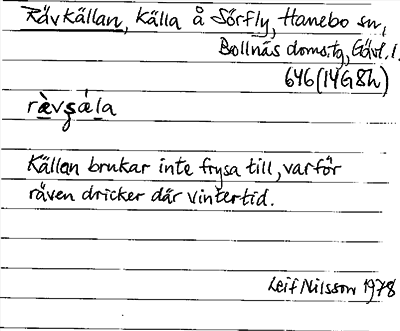 Rävkällan, källa å Sörfly, Hanebo sn,
Bollnäs doms.tg, Gävl. l.
646 (14G8h)
rȁvʂála
Källan brukar inte frysa till, varför
räven dricker där vintertid.
Leif Nilsson 1978